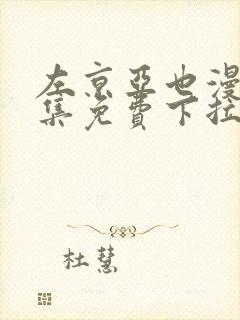 左京亚也漫
集免费下拉
杜慧